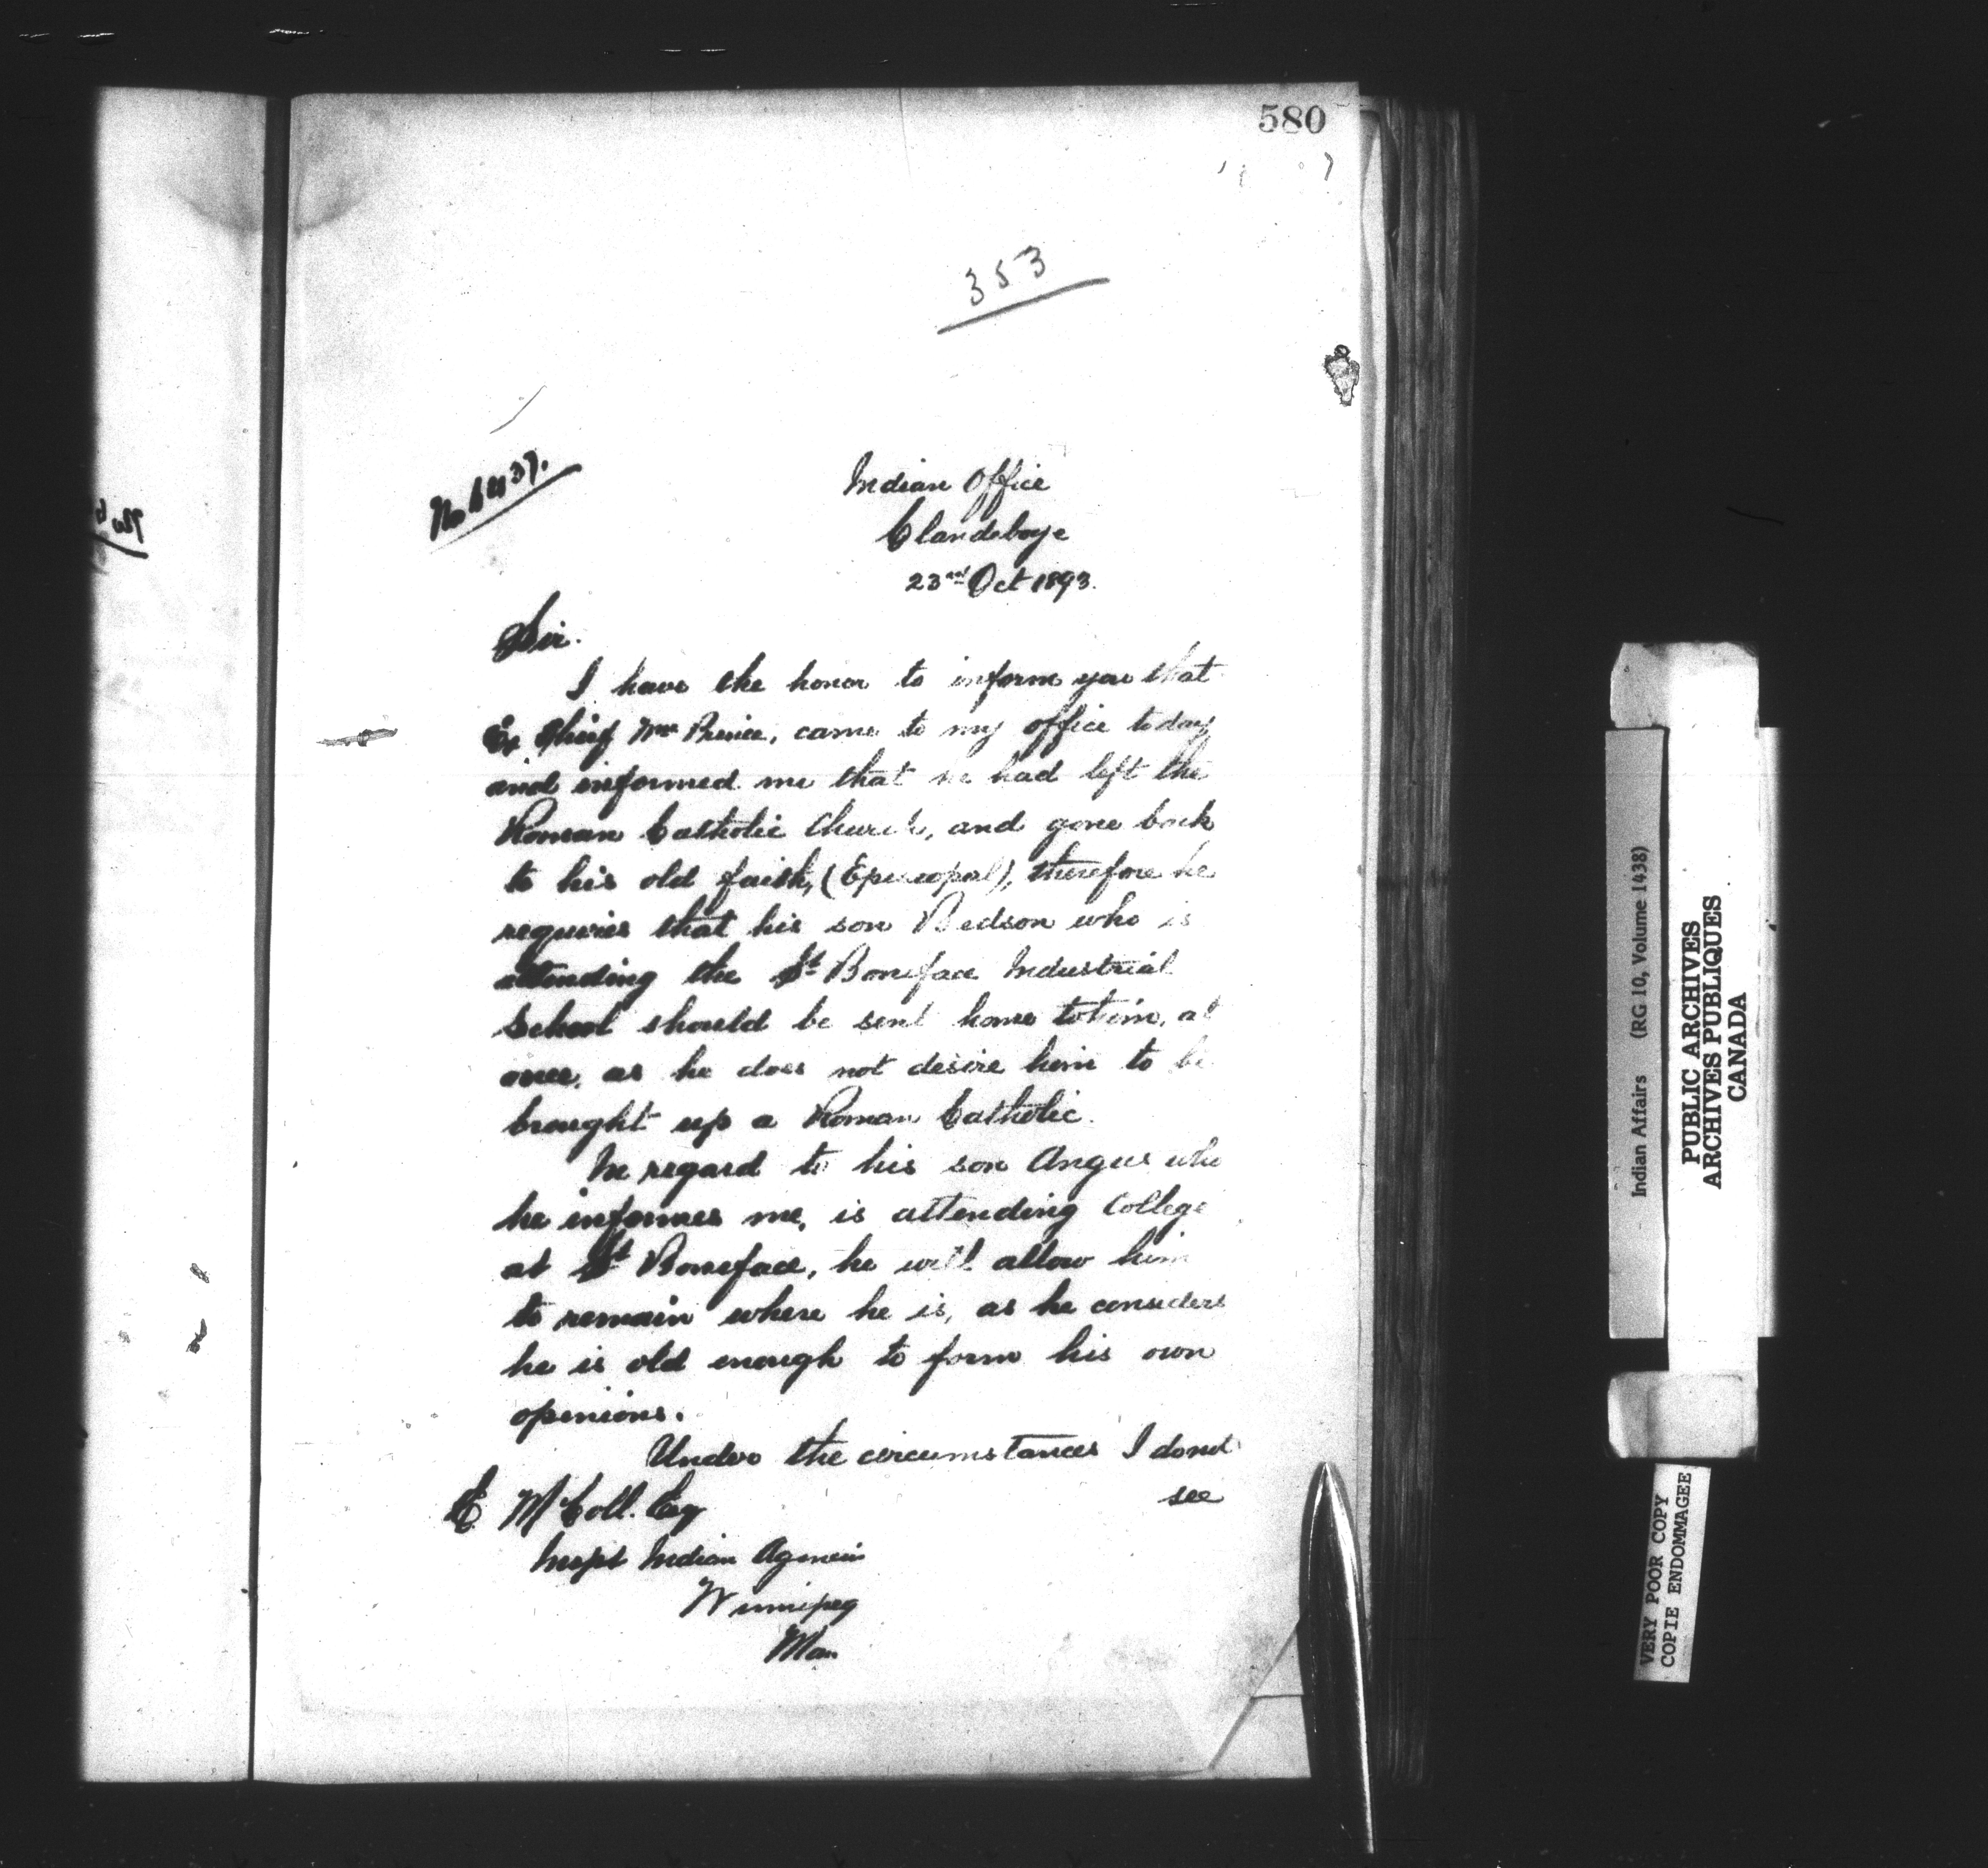 580
353
Indian Office
Clandeboye
23rd Oct 1893.
Sir.
I have the honor to inform you that
Ex Chief Wm Prince, came to my office today
and informed me that he had left the
Roman Catholic Church, and gone back
to his old faith, (Episcopal), therefore he
requires that his son Bedson who is
attending the St Boniface Industrial
School should be sent home to him, at
once, as he does not desire him to be
brought up a Roman Catholic.
In regard to his son Angus who
he informes me, is attending College
at St Boniface, he will allow him
to remain where he is, as he considers
he is old enough to form his own
opinions.
Under the circumstances I do not
see
E. McColl. Esq
Inspt Indian Agencies
Winnipeg
Man
Indian Affairs (RG 10, Volume 1438)
PUBLIC ARCHIVES
ARCHIVES PUBLIQUES
CANADA
VERY POOR COPY
COPIE ENDOMMAGEE